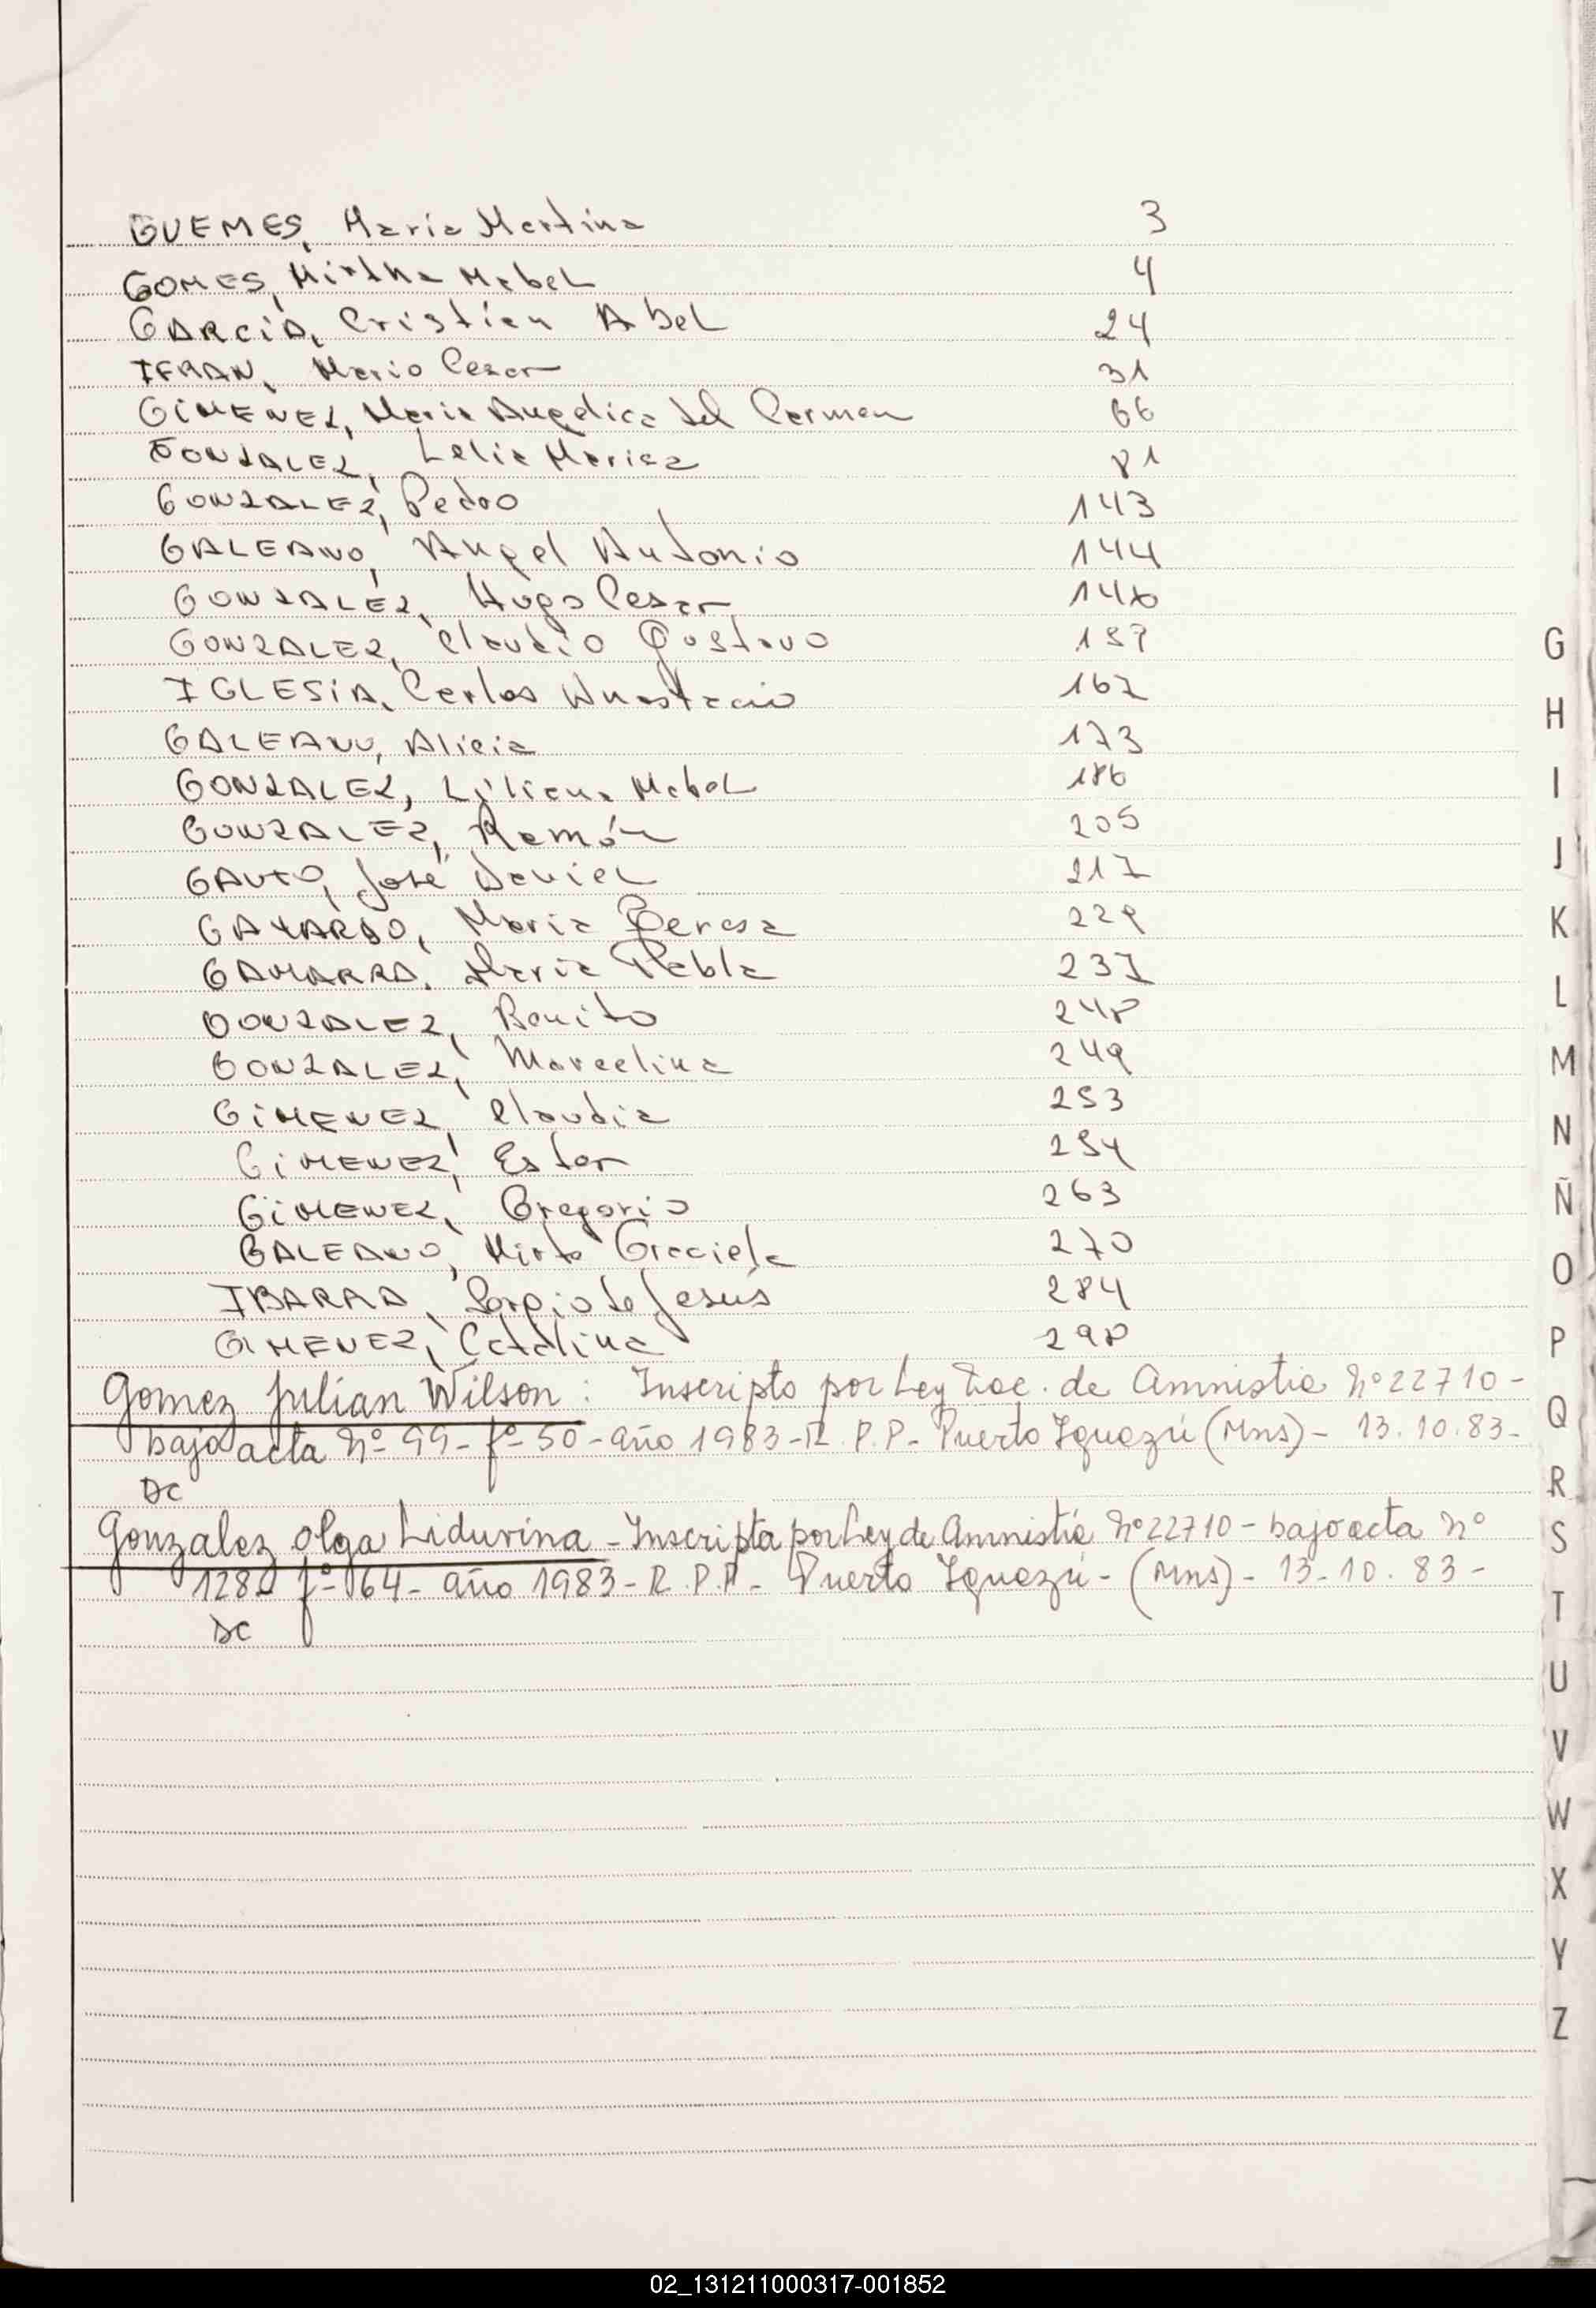 GUEMES, Maria Martina 3
GOMES, Mirtha Mabel 4
GARCÍA, Cristian Abel 24
IFRAN, Mario Cesar 31
GIMENEZ, Maria Angelica del Carmen 66
GONZALEZ, Lelia Marisa 81
GONZALEZ, Pedro 143
GALEANO, Angel Antonio 144
GONZALEZ, Hugo Cesar 146
GONZALEZ, Claudio Gustavo 157
IGLESIA, Carlos Anastacio 167
GALEANO, Alicia 173
GONZALEZ, Liliana Mabel 186
GONZALEZ, Ramón 205
GAUTO, José Daniel 217
GAYARDO, Maria Teresa 229
GAMARRA, Maria Pabla 237
GONZALEZ, Benito 248
GONZALEZ, Marcelina 249
GIMENEZ, Claudia 253
GIMENEZ, Ester 254
GIMENEZ, Gregorio 263
GALEANO, Mirta Graciela 270
IBARRA, Sergio de Jesús 284
GIMENEZ, Catalina 298
Gomez Julian Wilson: Inscripto por Ley Nac. de Amnistia Nº 22710-
bajo acta Nº 99- fº 50- año 1983- R.P.P- Puerto Iguazú (Mns)- 13.10.83-
DC
Gonzalez Olga Liduvina - Inscripta por Ley de Amnistía Nº 22710 - bajo acta Nº
128- fº 64- año 1983- R.P.P.- Puerto Iguazú- (Mns)- 13-10.83-
DC
G
H
I
J
K
L
M
N
Ñ
O
P
Q
R
S
T
U
V
W
X
Y
Z
02_131211000317-001852